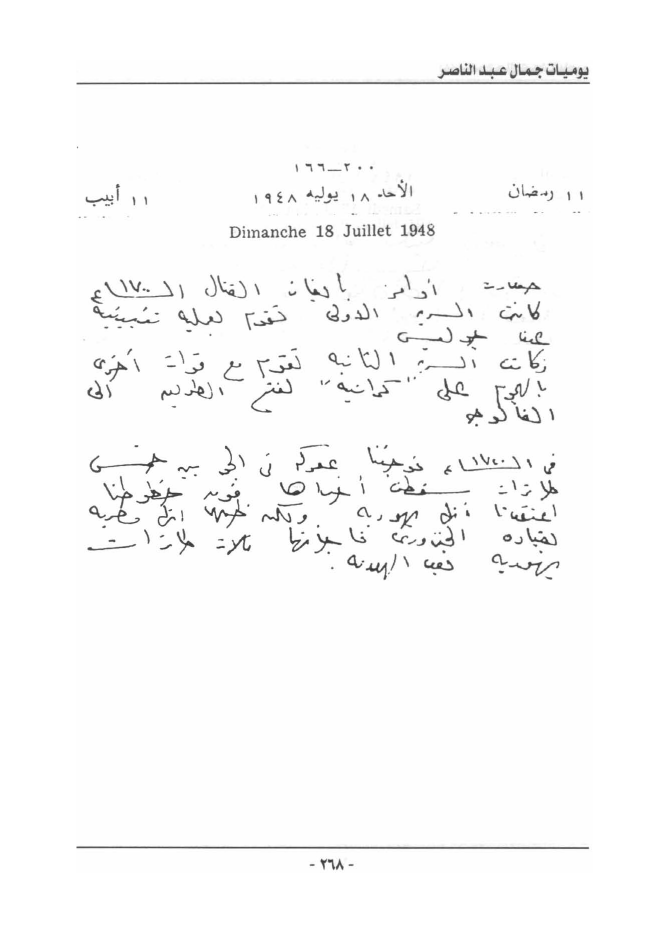 يوميات جمال عبد الناصر
٢٠٠-١٦٦
١١ رمضان الأحد ١٨ يوليه ١٩٤٨ ١١ أبيب
Dimanche 18 Juillet 1948
صدرت أوامر بإيقاف القتال الساعة ١٧٠٠
كانت السرية الدولى تقوم بعملية تفتيشية
عند جوليس
وكانت السرية الثانية تقوم مع قوات أخرى
بالهجوم على "كراتية" لفتح الطريق الى
الفالوجه
فى الساعة ١٧٢٠ فوجئنا بمعركة فى الجو بين خمس
طائرات سقطت أحداها فوق خطوطنا
اعتقدنا أنها يهودية ولكن ظهر انها مصرية
بقيادة الجنزورى هاجمتها ثلاث طائرات
يهودية بعد الهدنة .
- ٢٦٨ -